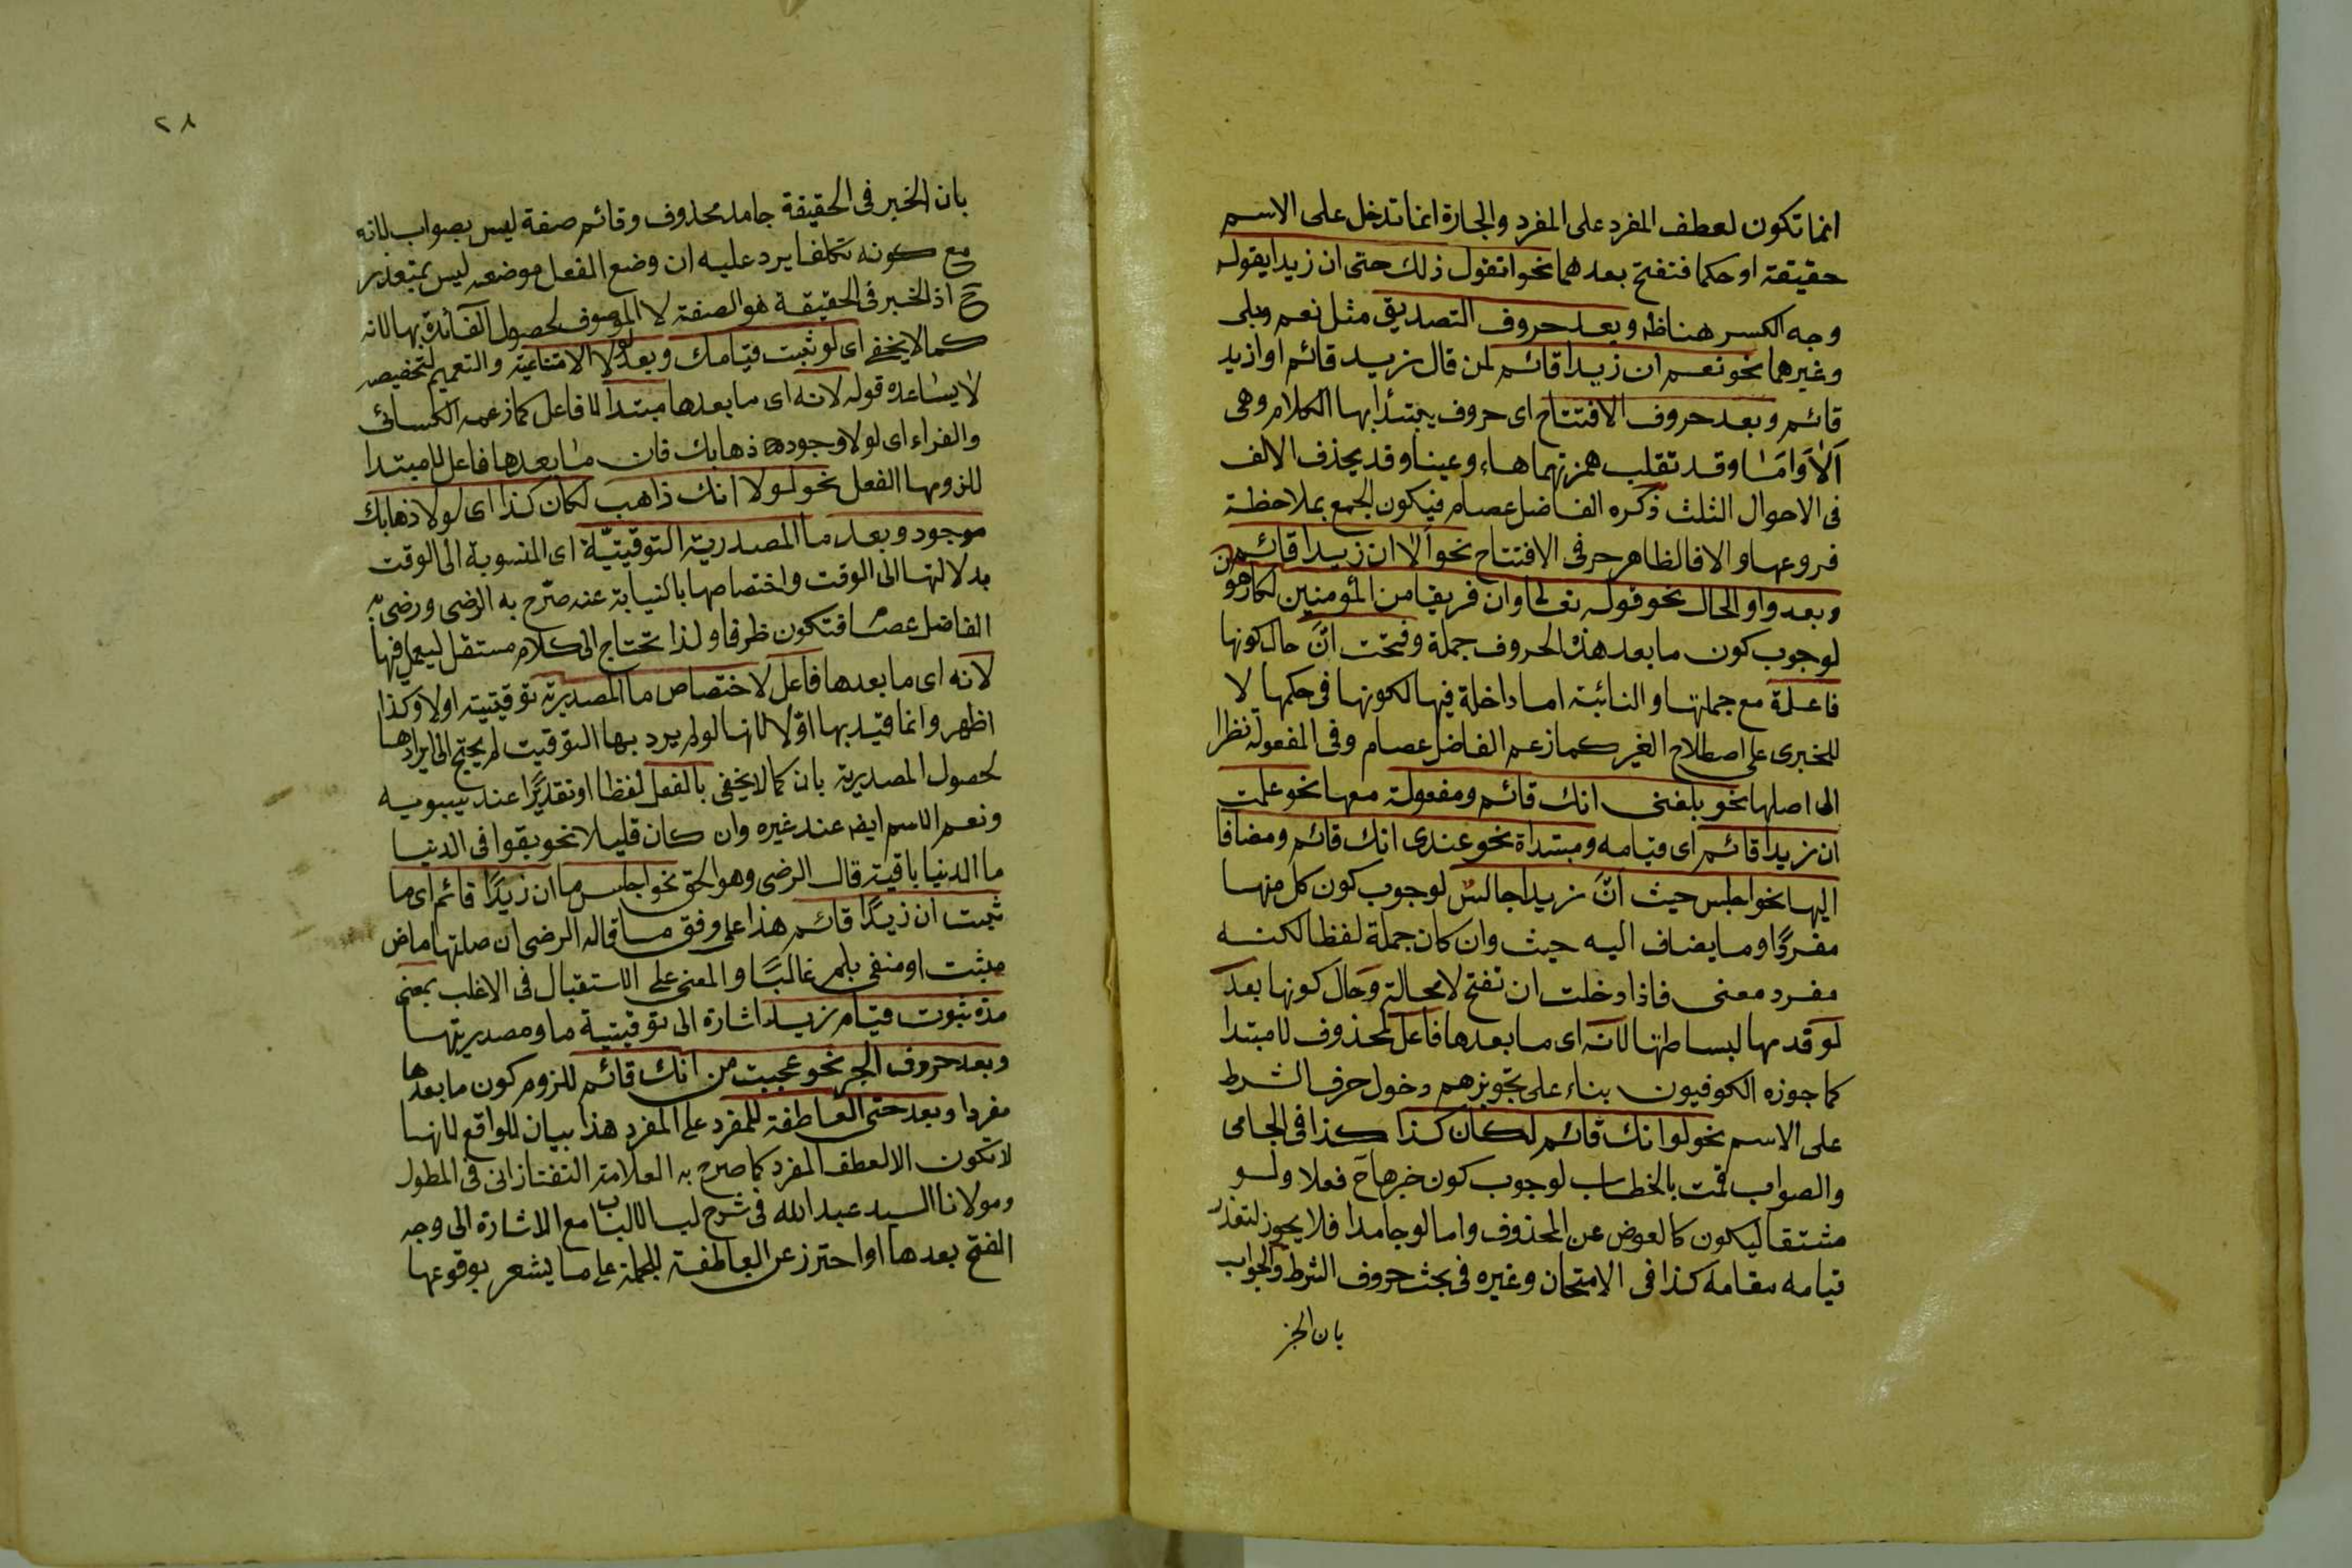 انما تكون لعطف المفرد على المفرد والجارة انما تدخل على الاسم
حقيقة او حكما فتفتح بعدهما نحو اتقول ذلك حتى ان زيدا يقوله
وجه الكسر هنا ظ وبعد حروف التصديق مثل نعم وبلى
وغيرهما نحو نعم ان زيدا قائم لمن قال زيد قائم او ازيد
قائم وبعد حروف الافتتاح اى حروف يبتدأ بها الكلام وهى
اَلَا وَاَمَا وقد تقلب همزتهما هاء وعينا وقد يحذف الالف
فى الاحوال الثلث ذكره الفاضل عصام فيكون الجمع بملاحظة
فروعها والا فالظاهر حرفى الافتتاح نحو الا ان زيدا قائم
وبعد واو الحال نحو قوله تعالى وان فريقا من المؤمنين لكارهون
لوجوب كون ما بعد هذه الحروف جملة وفتحت انّ حال كونها
فاعلة مع جملتها والنائبة اما داخلة فيها لكونها فى حكمها لا
للخبرى على اصطلاح الغير كما زعم الفاضل عصام وفى المفعولة نظرا
الى اصلها نحو بلغنى انك قائم ومفعولة معها نحو علمت
ان زيدا قائم اى قيامه ومبتداة نحو عندى انك قائم ومضافا
اليها نحو اجلس حيث انّ زيدا جالس لوجوب كون كل منها
مفردًا وما يضاف اليه حيث وان كان جملة لفظا لكنه
مفرد معنى فاذا دخلت ان تفتح لا محالة وحال كونها بعد
لو قدمها لبساطتها لانه اى ما بعدها فاعل لمحذوف لا مبتدا
كما جوزه الكوفيون بناء على تجويزهم دخول حرف الشرط
على الاسم نحو لو انك قائم لكان كذا كذا فى الجامى
والصواب قمت بالخطاب لوجوب كون خبرها ح فعلا ولو
مشتقا ليكون كالعوض عن المحذوف واما لو جامدا فلا يجوز لتعذر
قيامه مقامه كذا فى الامتحان وغيره فى بحث حروف الشرط والجواب
بان الخبر
٢٨
بان الخبر فى الحقيقة جامد محذوف وقائم صفة ليس بصواب لانه
مع كونه تكلفا يرد عليه ان وضع المفعل موضعه ليس بمتعذر
ح اذ الخبر فى الحقيقة هو الصفة لا الموصوف لحصول الفائدة بها لانه
كما لا يخفى اى لو ثبت قيامك وبعد لولا الامتناعية والتعميم لتخصيصه
لا يساعده قوله لانه اى ما بعدها مبتدا لا فاعل كما زعمه الكسائى
والفراء اى لولا وجودها ذهابك فان ما بعدها فاعل لا مبتدا
للزومها الفعل نحو لولا انك ذاهب لكان كذا اى لولا ذهابك
موجود وبعد ما المصدرية التوقيتيّة اى المنسوبة الى الوقت
بدلالتها الى الوقت واختصاصها بالنيابة عنه صرّح به الرضى ورضى به
الفاضل عصا فتكون ظرفا ولذا تحتاج الى كلام مستقل ليعمل فيها
لانه اى ما بعدها فاعل لاختصاص ما المصدرية توقيتية اولا وكذا
اظهر وانما قيّد بها اوّلا لانها لو لم يرد بها التوقيت لم يحتج الى ايرادها
لحصول المصدرية بان كما لا يخفى بالفعل لفظا او تقديرًا عند سيبويه
ونعم الاسم ايضه عند غيره وان كان قليلا نحو بقوا فى الدنيا
ما الدنيا باقية قال الرضى وهو الحق نحو اجلس ما ان زيدًا قائم اى ما
ثبت ان زيدًا قائم هذا على وفق ما قاله الرضى ان صلتها ماض
مثبت او منفى بلم غالبًا والمعنى على الاستقبال فى الاغلب بمعنى
مدة ثبوت قيام زيد اشارة الى توقيتية ما ومصدريتها
وبعد حروف الجر نحو عجبت من انك قائم للزوم كون ما بعدها
مفردا وبعد حتى العاطفة للمفرد على المفرد هذا بيان للواقع لانها
لا تكون الا لعطف المفرد كما صرح به العلامة التفتازانى فى المطول
ومولانا السيد عبد الله فى شرح لب الالباب مع الاشارة الى وجه
الفتح بعدها او احترز عن العاطفة للجملة على ما يشعر بوقوعها